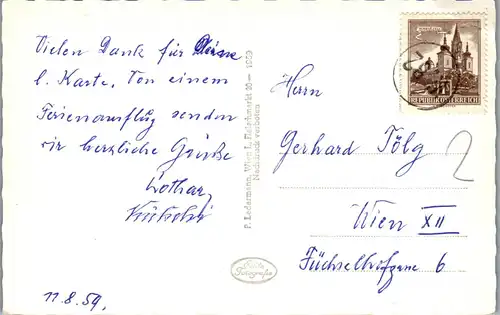 Vielen Dank für Deine
l. Karte. Von einem
Ferienausflug senden
wir herzliche Grüße
Lothar
11.8.59.
P. Ledermann, Wien I., Fleischmarkt 20 — 1959
Nachdruck verboten
Echte
Fotografie
REPUBLIK ÖSTERREICH
Herrn
Gerhard Fölg
Wien XII
Füchselhofgasse 6
2